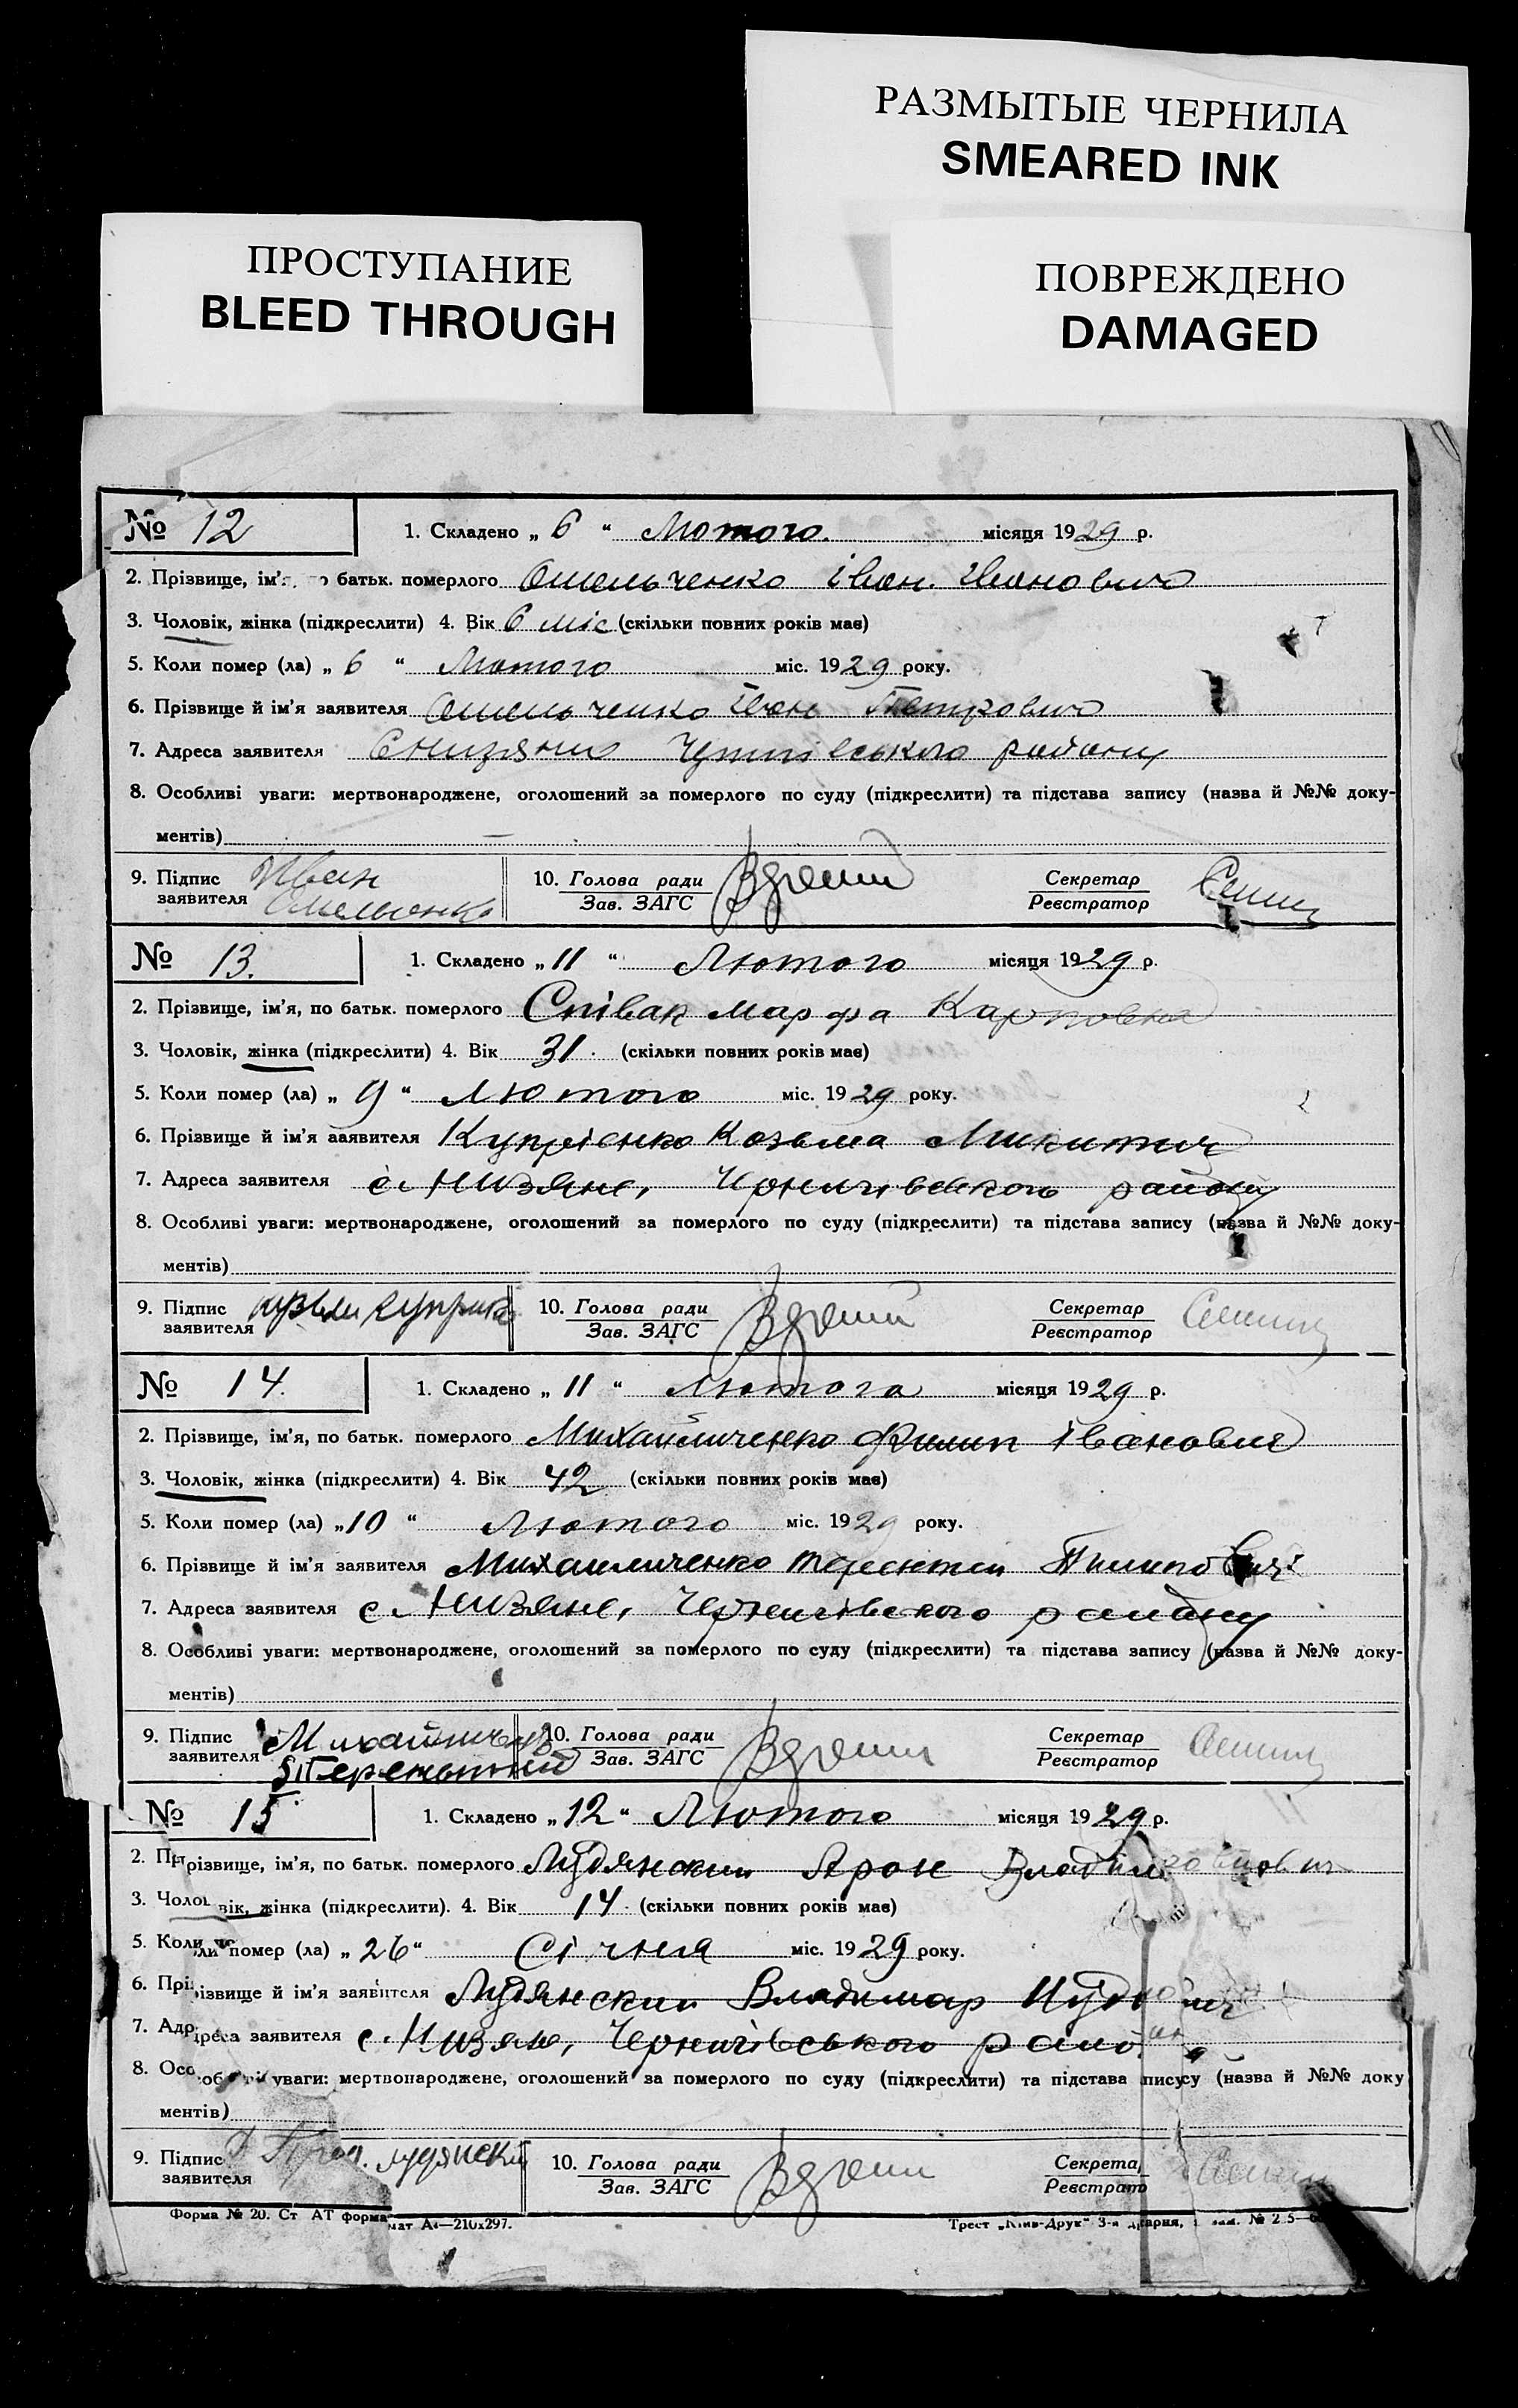 РАЗМЫТЫЕ ЧЕРНИЛА
SMEARED INK
ПРОСТУПАНИЕ
BLEED THROUGH
ПОВРЕЖДЕНО
DAMAGED
№ 12 1. Складено „ 6 “ Лютого місяця 1929 р.
2. Прізвище, ім'я, по батьк. померлого Омельченко Іван Іванович
3. Чоловік, жінка (підкреслити) 4. Вік 6 міс (скільки повних років має)
5. Коли помер (ла) „ 6 “ Лютого міс. 1929 року.
6. Прізвище й ім'я заявителя Омельченко Іван Петрович
7. Адреса заявителя району
8. Особливі уваги: мертвонароджене, оголошений за померлого по суду (підкреслити) та підстава запису (назва й №№ доку-
ментів)
9. Підпис заявителя Иван Омельченко 10. Голова ради Зав. ЗАГС Секретар Реєстратор
№ 13. 1. Складено „ 11 “ Лютого місяця 1929 р.
2. Прізвище, ім'я, по батьк. померлого Співак Марфа Карповна
3. Чоловік, жінка (підкреслити) 4. Вік 31. (скільки повних років має)
5. Коли помер (ла) „ 9 “ Лютого міс. 1929 року.
6. Прізвище й ім'я заявителя Купрієнко Козьма Микитич
7. Адреса заявителя с. Низяне, району
8. Особливі уваги: мертвонароджене, оголошений за померлого по суду (підкреслити) та підстава запису (назва й №№ доку-
ментів)
9. Підпис заявителя 10. Голова ради Зав. ЗАГС Секретар Реєстратор
№ 14. 1. Складено „ 11 “ Лютого місяця 1929 р.
2. Прізвище, ім'я, по батьк. померлого Михайличенко Филип Іванович
3. Чоловік, жінка (підкреслити) 4. Вік 42 (скільки повних років має)
5. Коли помер (ла) „ 10 “ Лютого міс. 1929 року.
6. Прізвище й ім'я заявителя Михаиличенко Терентій Пилипович
7. Адреса заявителя с. Низяне, Чернигівського району
8. Особливі уваги: мертвонароджене, оголошений за померлого по суду (підкреслити) та підстава запису (назва й №№ доку-
ментів)
9. Підпис заявителя 10. Голова ради Зав. ЗАГС Секретар Реєстратор
№ 15 1. Складено „ 12 “ Лютого місяця 1929 р.
2. Прізвище, ім'я, по батьк. померлого Лудянский Арон
3. Чоловік, жінка (підкреслити). 4. Вік 14. (скільки повних років має)
5. Коли помер (ла) „ 26 “ Січня міс. 1929 року.
6. Прізвище й ім'я заявителя Лудянский Владимир
7. Адреса заявителя с. Низяне, Чернигівського
8. Особливі уваги: мертвонароджене, оголошений за померлого по суду (підкреслити) та підстава запису (назва й №№ доку
ментів)
9. Підпис заявителя 10. Голова ради Зав. ЗАГС Секретар Реєстратор
Форма № 20. Ст АТ формат А4—210х297. Трест „Київ-Друк“ 3-я